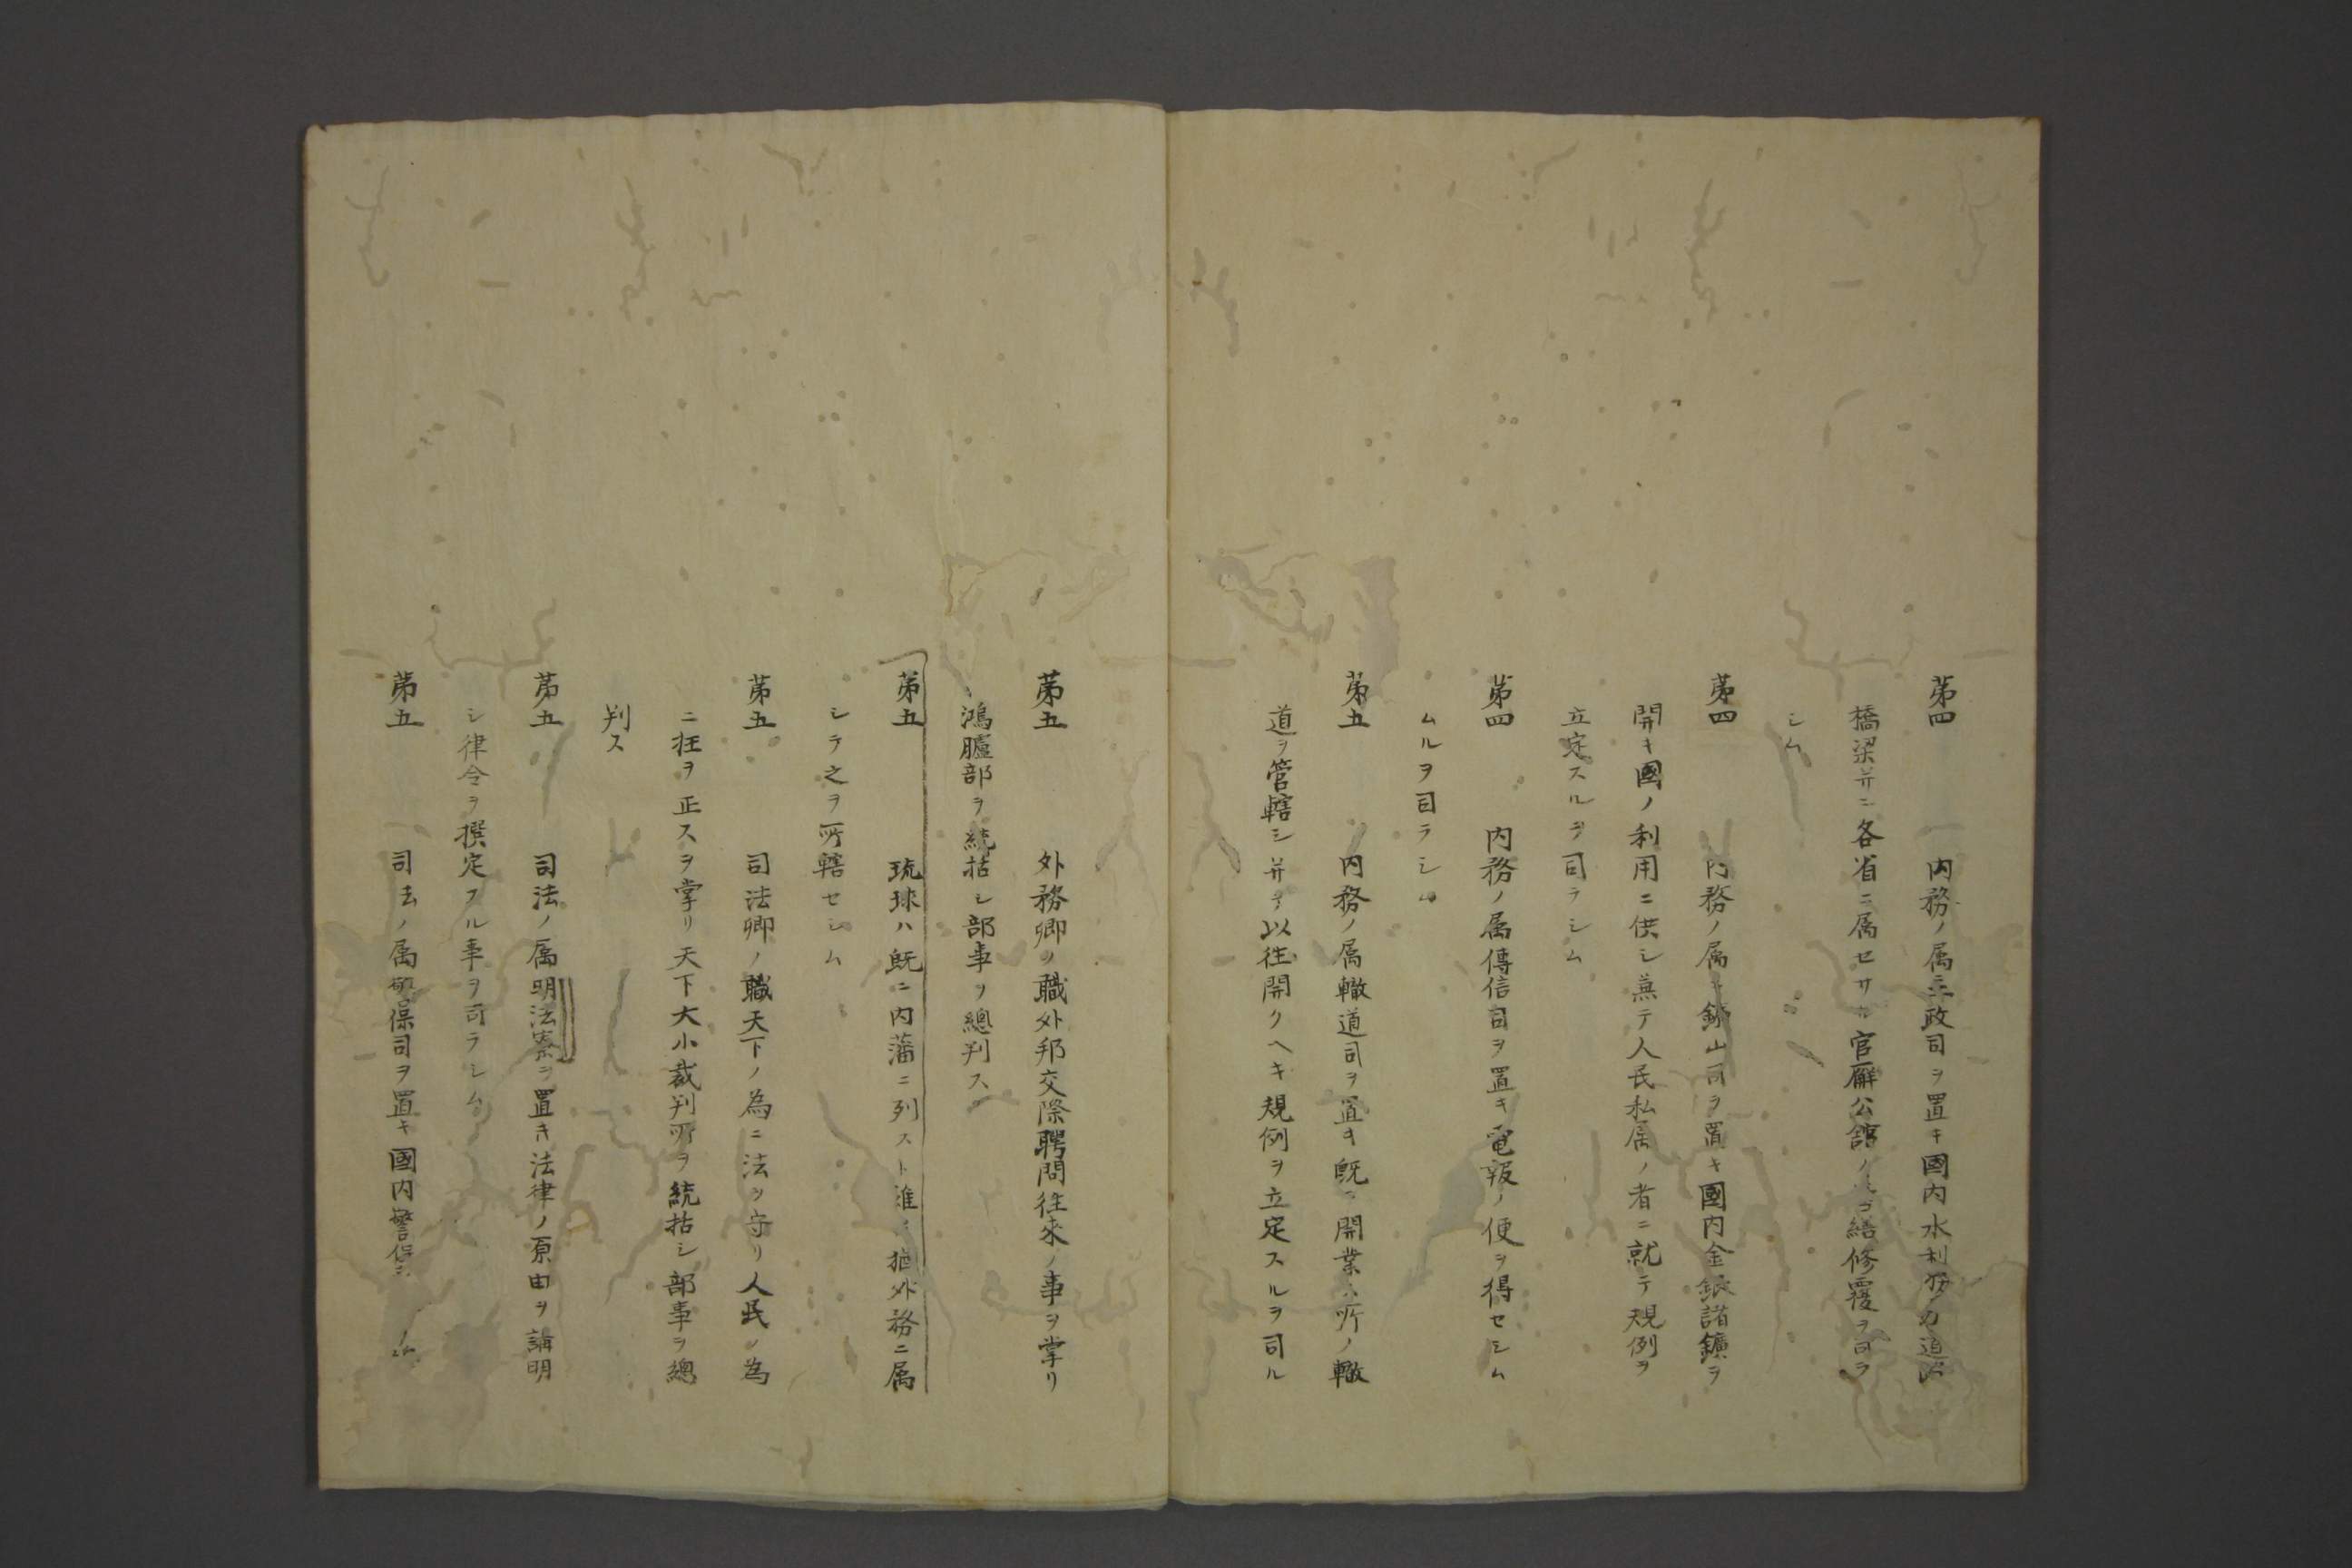 第四 内務ノ属ニ政司ヲ置キ國内水利
橋梁并ニ各省ニ属セサル官廨公館ノ 繕修覆ヲ司ラ
シム
第四 内務ノ属ニ鉱山司ヲ置キ國内金銀諸鑛ヲ
開キ國ノ利用ニ供シ兼テ人民私属ノ者ニ就テ規例ヲ
立定スルヲ司ラシム
第四 内務ノ属傳信司ヲ置キ電報ノ便ヲ得セシム
ムルヲ司ラシム
第五 内務ノ属轍道司ヲ置キ既ニ開業ノ所ノ轍
道ヲ管轄シ并テ以往開クヘキ規例ヲ立定スルヲ司ル
第五 外務卿ノ職外邦交際聘問往来ノ事ヲ掌リ
鴻臚部ヲ統括シ部事ヲ總判ス
第五 琉球ハ既ニ内藩ニ列スト雖モ猶外務ニ属
シテ之ヲ所轄セシム
第五 司法卿ノ職天下ノ為ニ法ヲ守リ人民ノ為
ニ枉ヲ正スヲ掌リ天下大小裁判所ヲ統括シ部事ヲ總
判ス
第五 司法ノ属明法寮ヲ置キ法律ノ原由ヲ論明
シ律令ヲ撰定スル事ヲ司ラシム
第五 司法ノ属 保司ヲ置キ國内警保